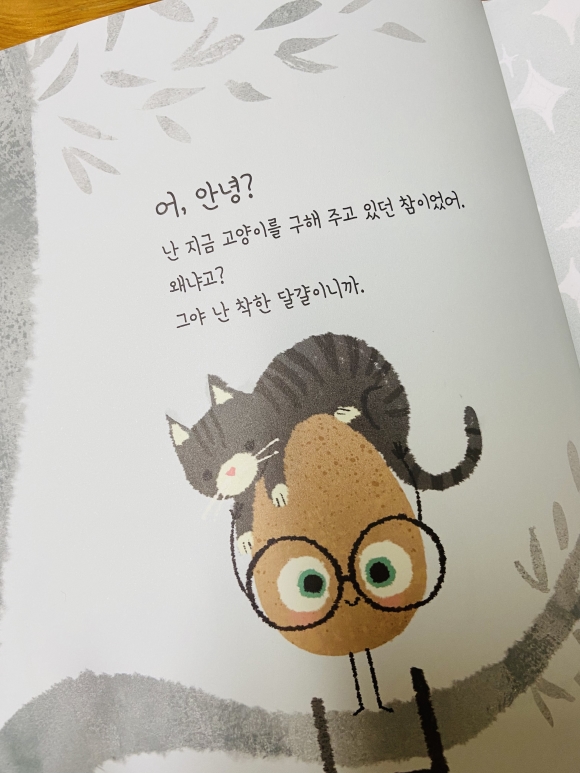 어, 안녕?
난 지금 고양이를 구해 주고 있던 참이었어.
왜냐고?
그야 난 착한 달걀이니까.